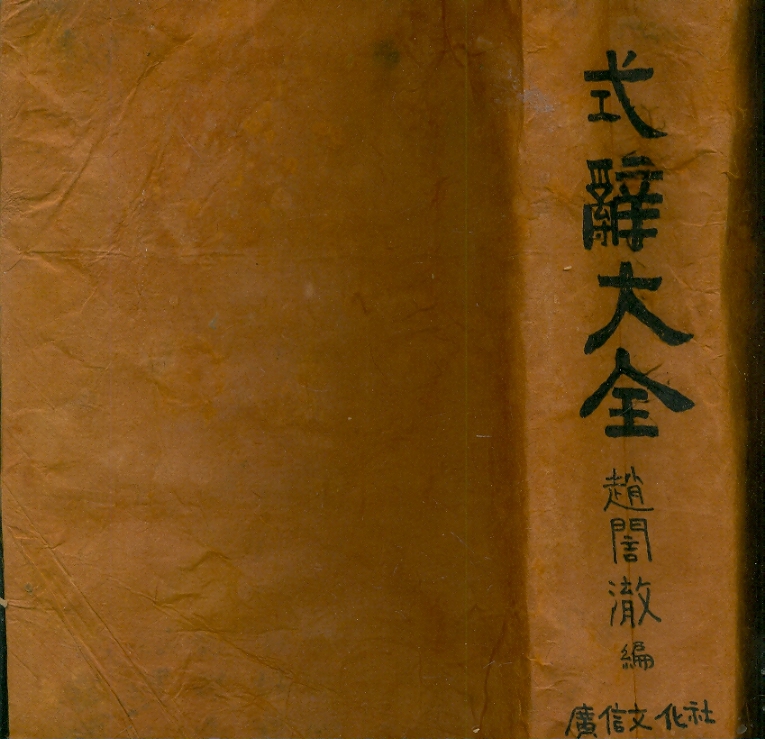 式辭大全
趙誾澈 編
廣信文化社